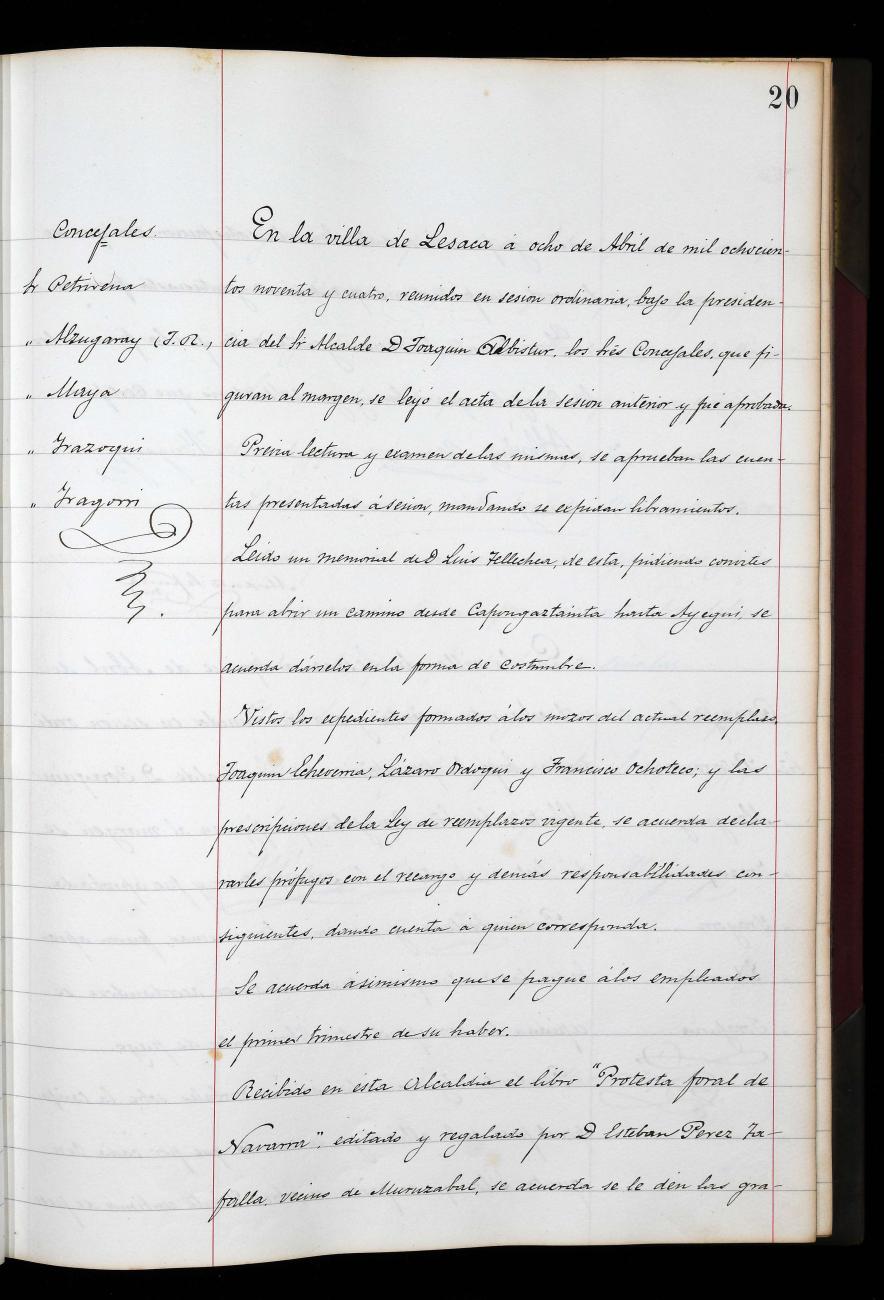 20
Concejales.
Sr Petrirena
„ Alzugaray (J. R.,
„ Maya
„ Irazoqui
„ Iragorri
En la villa de Lesaca á ocho de Abril de mil ochocien-
tos noventa y cuatro, reunidos en sesion ordinaria, bajo la presiden-
cia del Sr Alcalde D Joaquin Albistur, los Srés Concejales, que fi-
guran al margen, se leyó el acta de la sesion anterior y fué aprobada.
Previa lectura y examen de las mismas, se aprueban las cuen-
tas presentadas á sesion, mandando se expidan libramientos.
Leido un memorial de D Luis Tellechea, de esta, pidiendo convites
para abrir un camino desde Capongaztainta hasta Ayegui, se
acuerda dárselos en la forma de costumbre.
Vistos los expedientes formados á los mozos del actual reemplazo,
Joaquin Echeverria, Lázaro Ordoqui y Francisco Ochoteco; y las
prescripciones de la Ley de reemplazos vigente, se acuerda decla-
rarles prófugos con el recargo y demás responsabilidades con-
siguientes, dando cuenta á quien corresponda.
Se acuerda ásimismo que se pague á los empleados
el primer trimestre de su haber.
Recibido en esta Alcaldia el libro "Protesta foral de
Navarra", editado y regalado por D Esteban Perez Ta-
falla, vecino de Muruzabal, se acuerda se le den las gra-